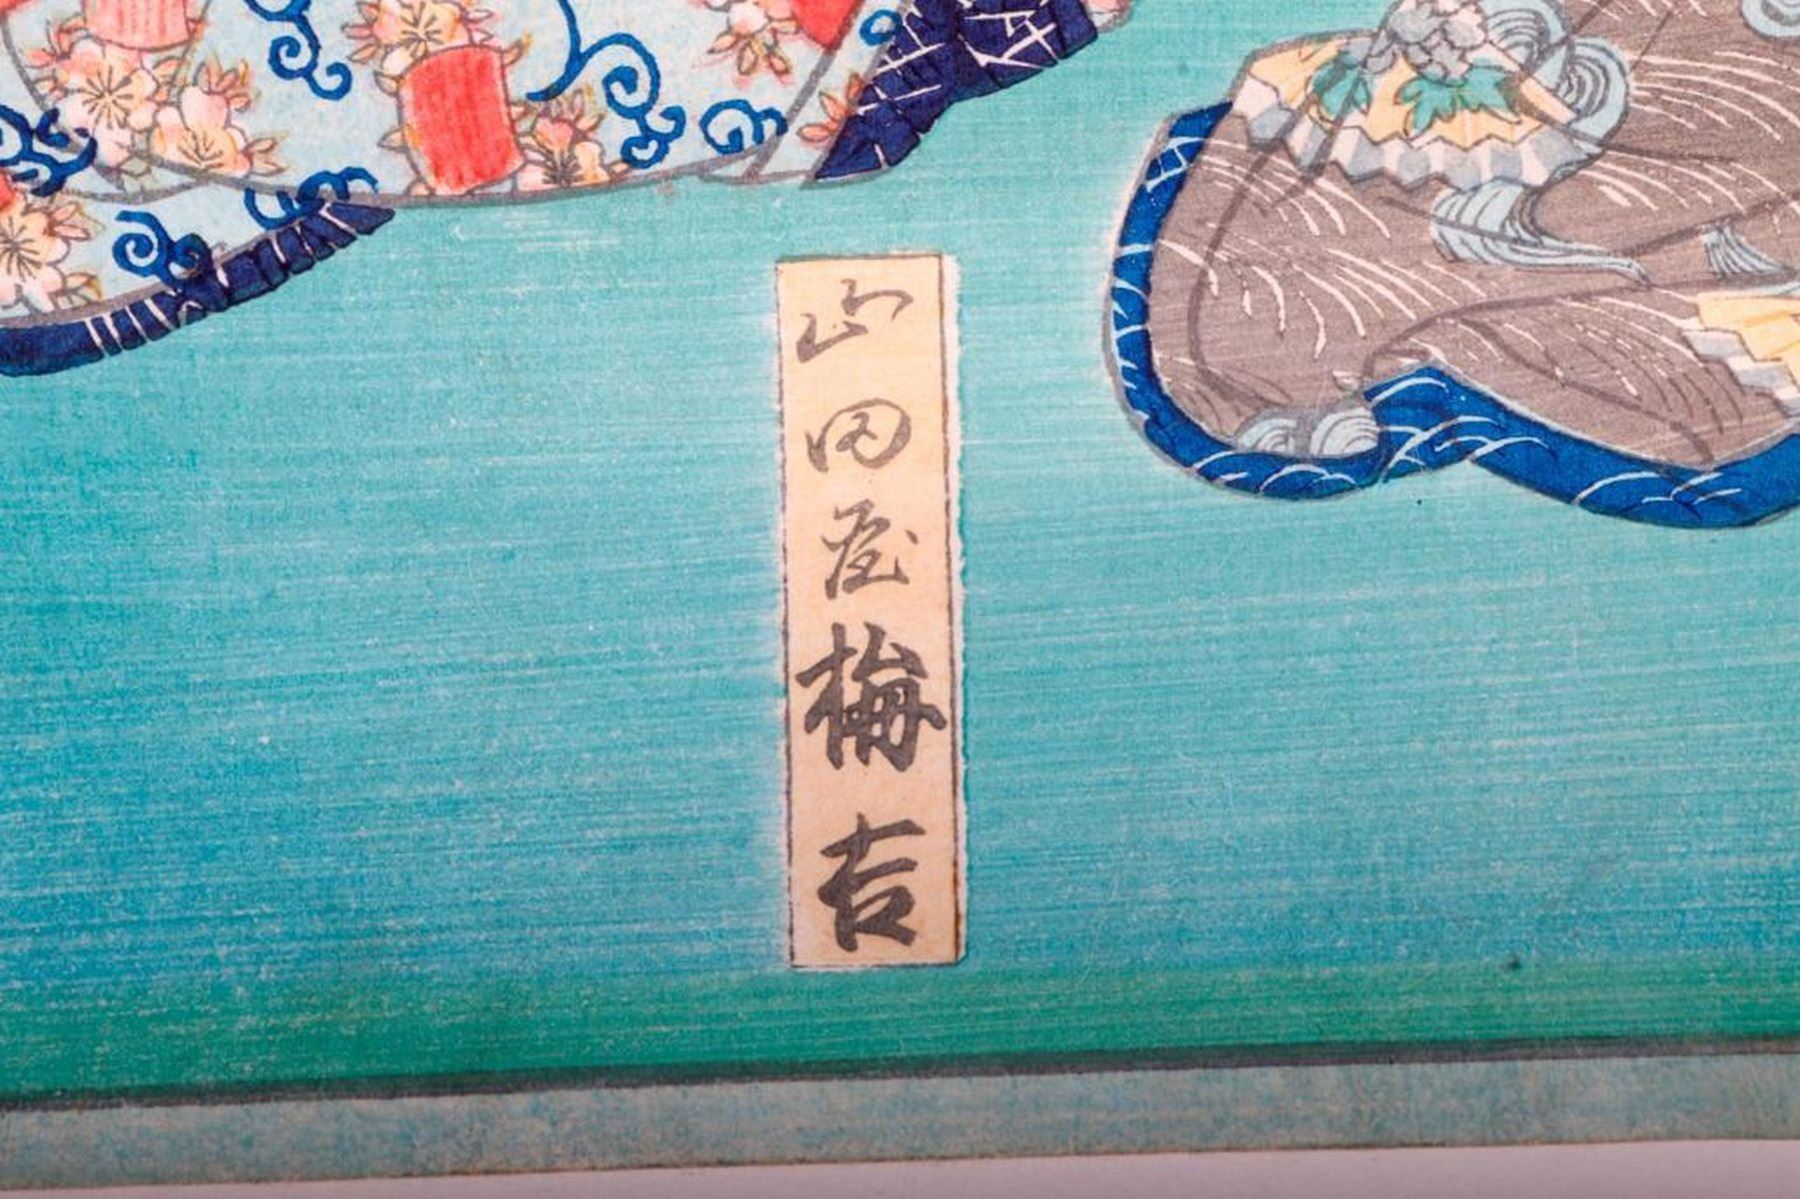 山田屋梅吉